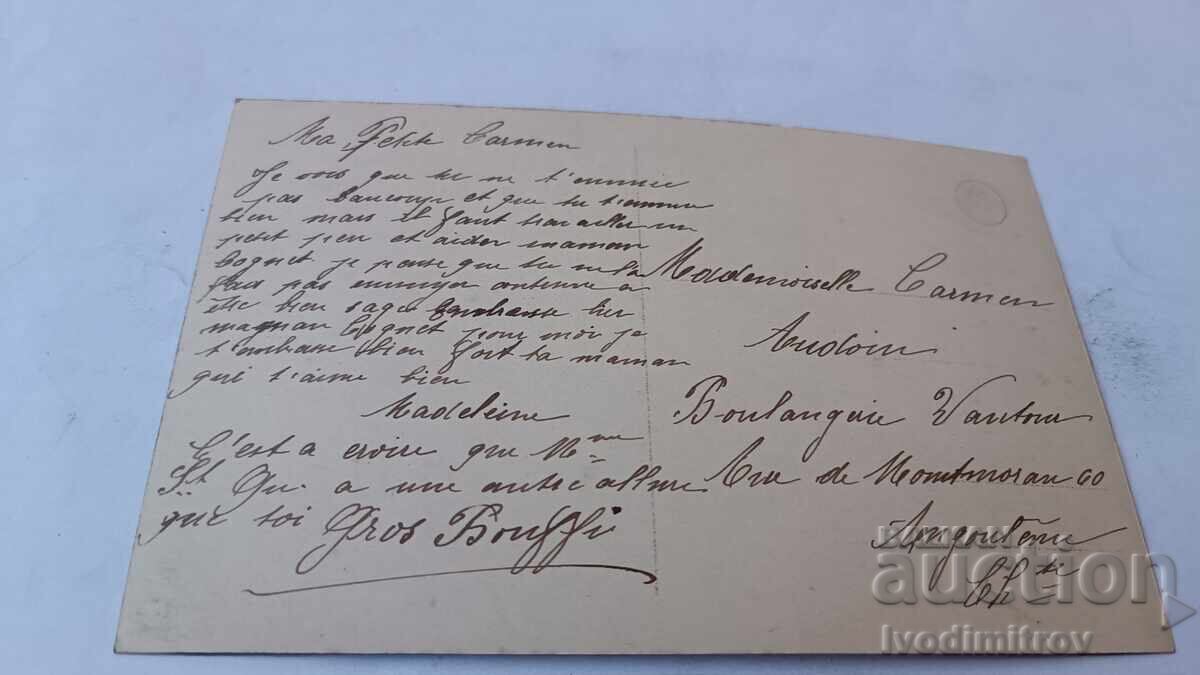 Ma Petite Carmen
Je vois que tu ne t'ennuie
pas baucoup et que tu t'amuse
bien mais il faut travailler un
petit peu et aider maman
Cognet je pense que tu ne la
fais pas ennuyer a
être bien sage embrasse
Cognet pour moi je
t'embrasse bien fort ta maman
qui t'aime bien
Madeleine
C'est a croire que Mme
St Qu. a une autre allure
que toi Gros Bouffi
Mademoiselle Carmen
Audoin
Boulangerie Vantour
Rue de Montmorau 60
Angoulême
Chte
auction
Ivodimitrov